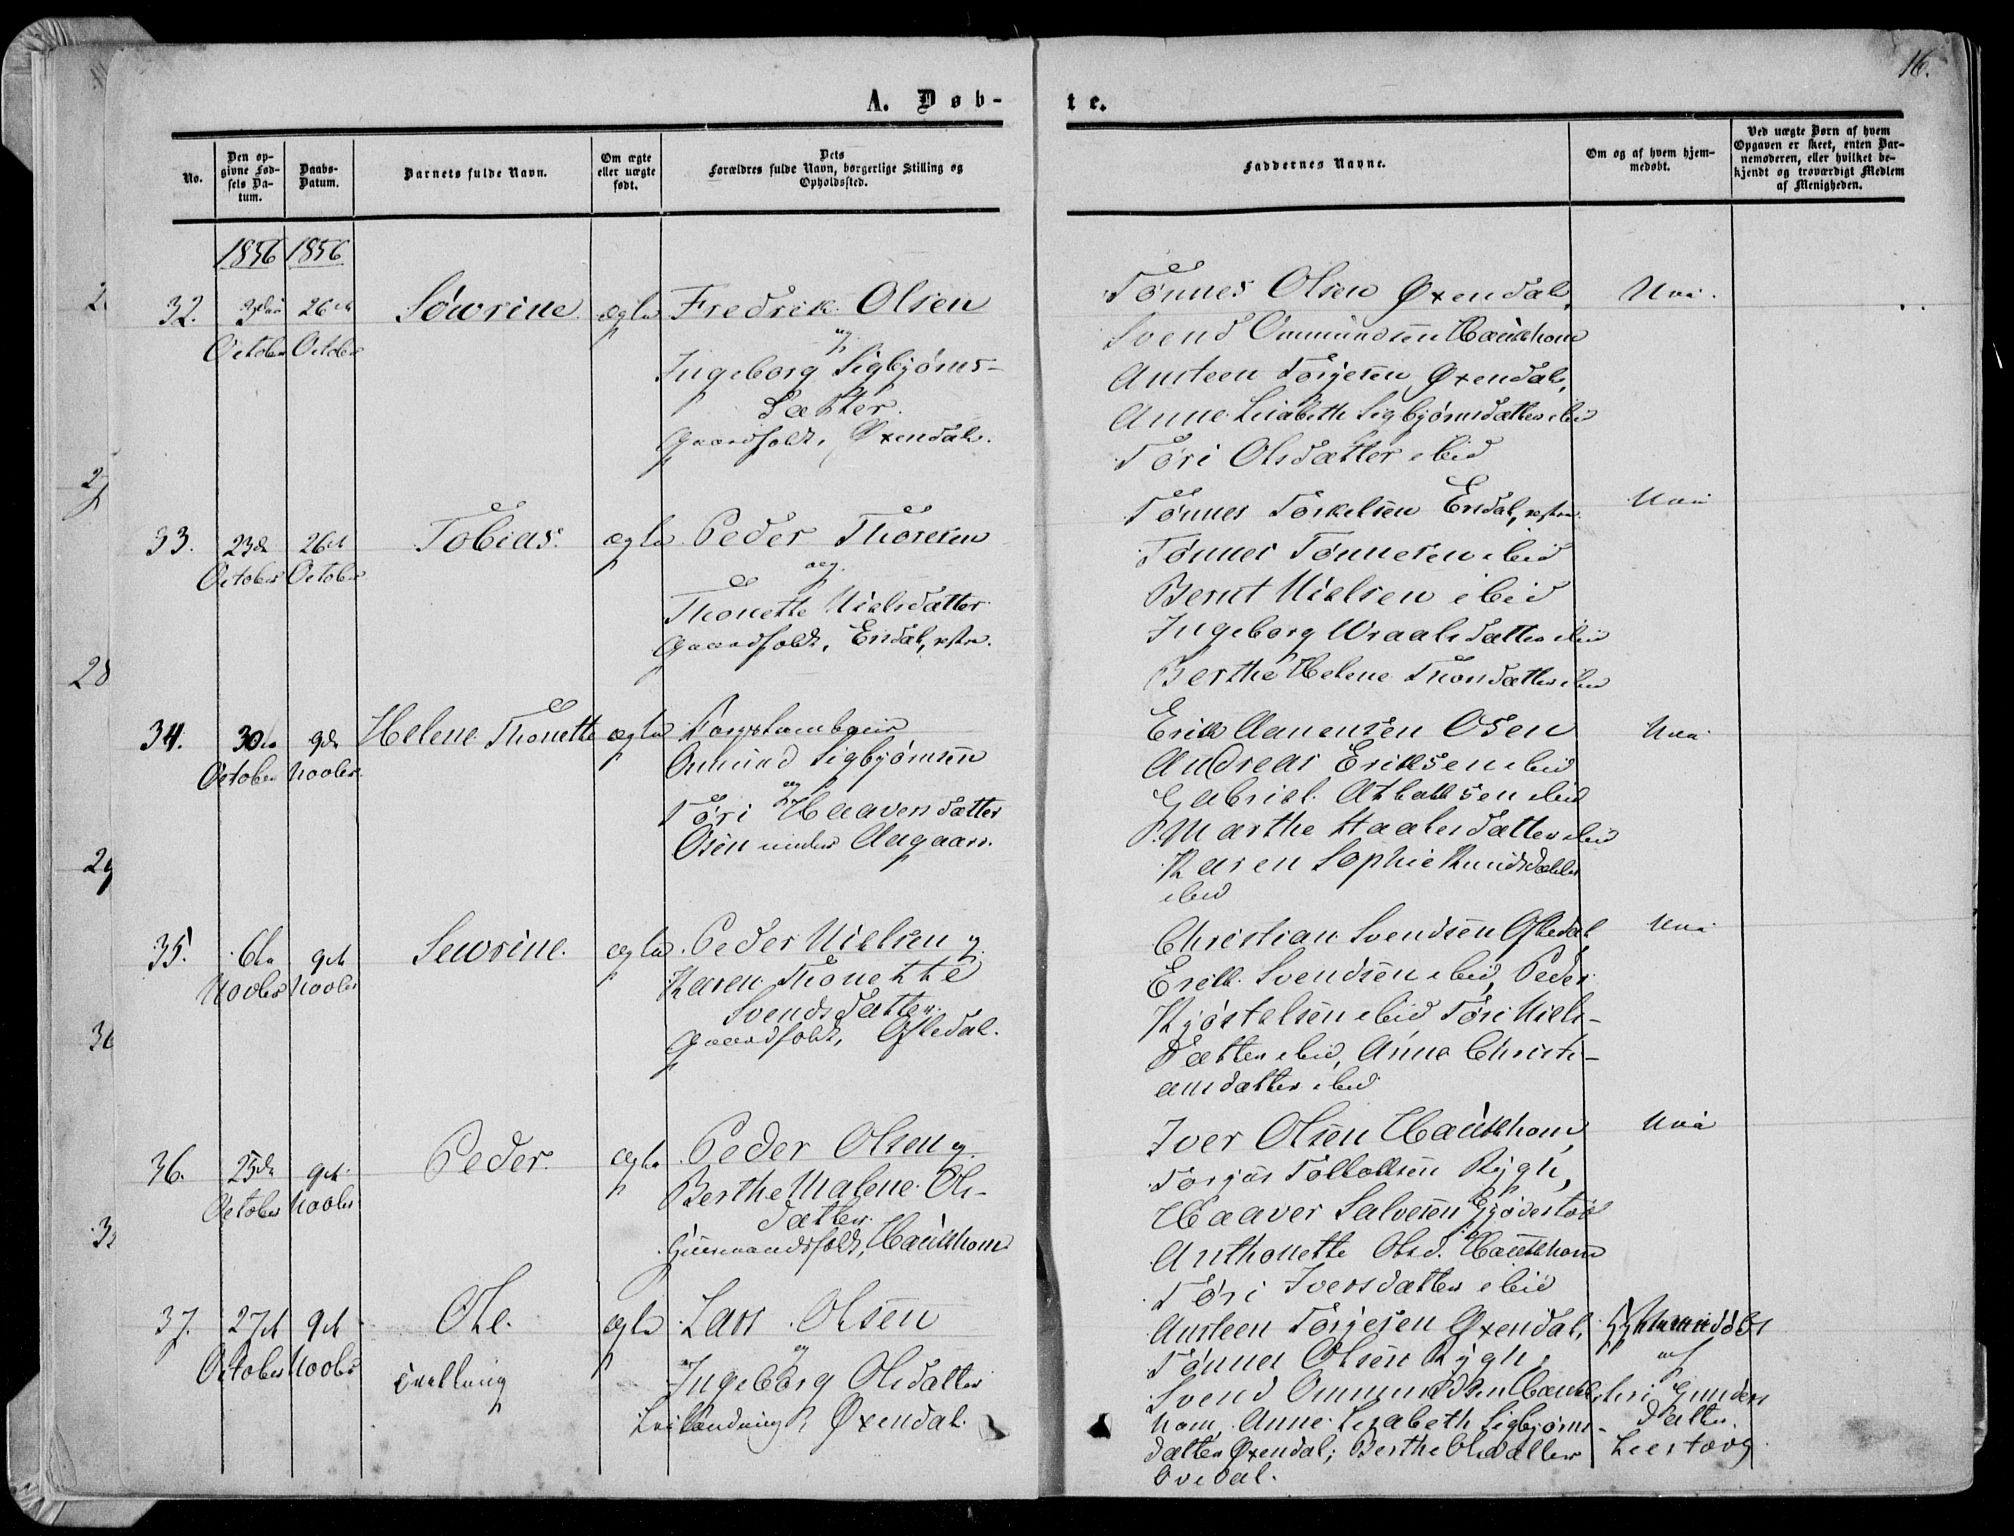 16.
A. Døb-
te.
No.
Den op-
givne Fød-
sels Da-
tum.
Daabs-
Datum.
Barnets fulde Navn.
Om ægte
eller uægte
født.
Dets
Forældres fulde Navn, borgerlige Stilling og
Opholdssted.
Faddernes Navne.
Om og af hvem hjem-
medøbt.
Ved uægte Børn af hvem
Opgaven er skeet, enten Bar-
nemoderen, eller hvilket be-
kjendt og troværdigt Medlem
af Menigheden.
1856 1856
32.
October
26de
October
Søvrine
ægte
Fredrik Olsen
og
Ingeborg Sigbjørns-
Datter.
Gaardfolk, Øxendal.
Tønnes Olsen Øxendal,
Svend Ommundsen Haückhom
Ansteen Torjesen Øxendal,
Anne Lisabeth Sigbjørnsdatter ibid
Tøri Olsdatter ibid
Nei.
33.
23de
October
26de
October
Tobias.
ægte
Peder Thoresen
og
Thonette Nielsdatter
Gaardfolk, Eisdal, østre.
Tønnes Torkelsen Eisdal, østre.
Tønnes Tønnesen ibid
Bernt Nielsen ibid
Ingeborg Wraalsdatter ibid
Berthe Helene Thorsdatter ibid
Nei
34.
30te
October
9de
Novbr.
Helene Thonette
ægte
Ommund Sigbjørnsen
og
Tøri Haaversdatter
Osen under Aagaard.
Erik Aanensen Osen
Andreas Eriksen ibid
Gabriel Aslaksen ibid
Marthe Staalesdatter ibid
Karen Sophie Knudsdatter
ibid
Nei
35.
6te
Novbr
9de
Novbr
Sewrine.
ægte
Peder Nielsen og
Karen Thonette
Svendsdatter.
Gaardfolk, Oftedal.
Christian Svendsen Oftedal
Erik Svendsen ibid, Peder
Kjøstelsen ibid Tøri Niels-
datter ibid, Anna Christi-
ansdatter ibid
Nei
36.
25de
October
9de
Novbr
Peder.
ægte
Peder Olsen og
Berthe Malene Ols-
datter.
Huusmandsfolk, Haückhom
Iver Olsen Haückhom,
Torjus Tollaksen Rygh,
Haaver Salvesen Gjødestøl
Anthonette Olsd. Haückhom
Tøri Iversdatter ibid
Nei
37.
27de
October
9de
Novbr
Ole.
tvilling
ægte
Lars Olsen
og
Ingeborg Olsdatter
Øxendal.
Ansteen Torjesen Øxendal,
Tønnes Olsen Rygh,
Svend Ommundsen Haück-
hom, Anne Lisabeth Sigbjørns-
datter Øxendal; Berthe Olsdatter
Ovedal.
Hjemmedøbt
af
Siri Gunders
datter
28
29